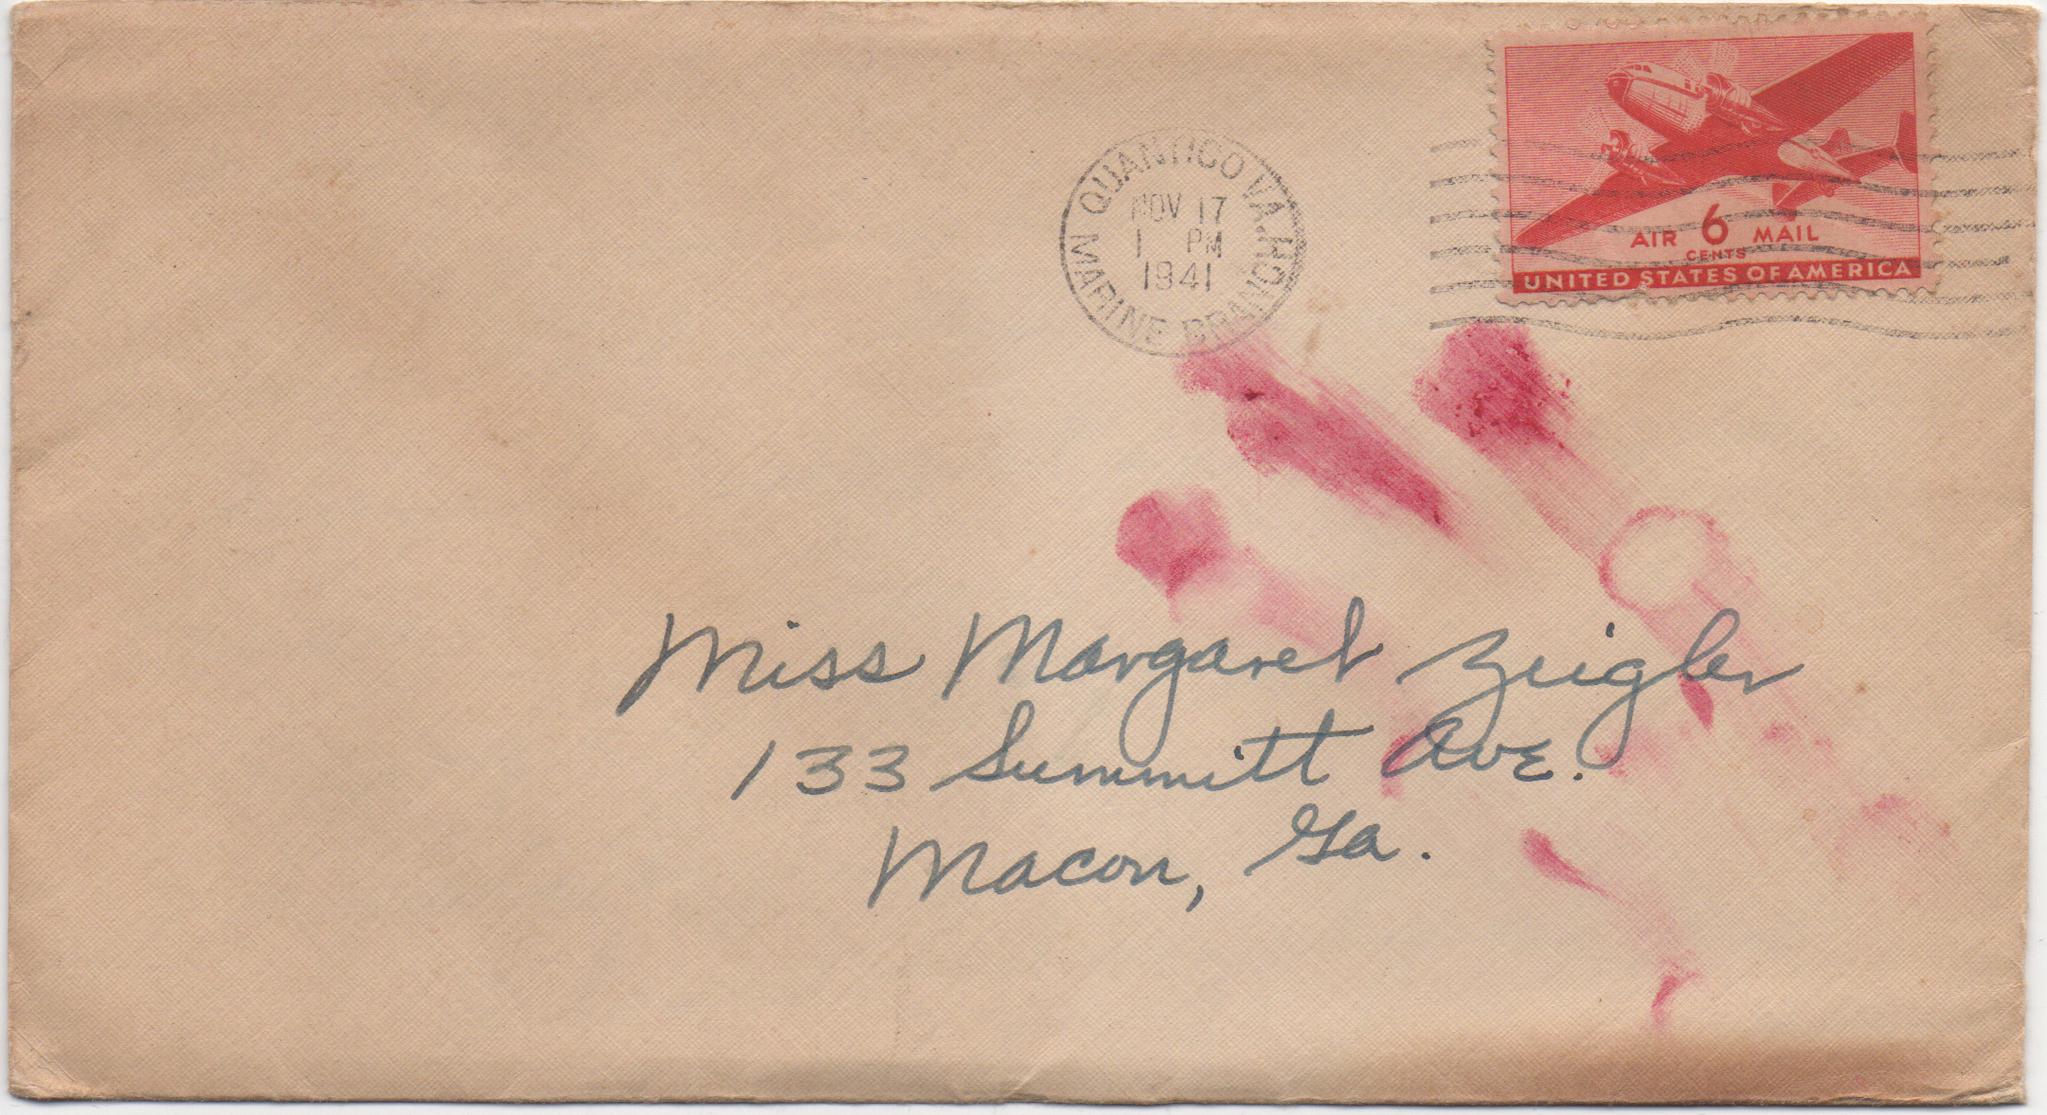 QUANTICO VA.
NOV 17
1 PM
1941
MARINE BRANCH
AIR 6 MAIL
CENTS
UNITED STATES OF AMERICA
Miss Margaret Zeigler
133 Summitt Ave.
Macon, Ga.